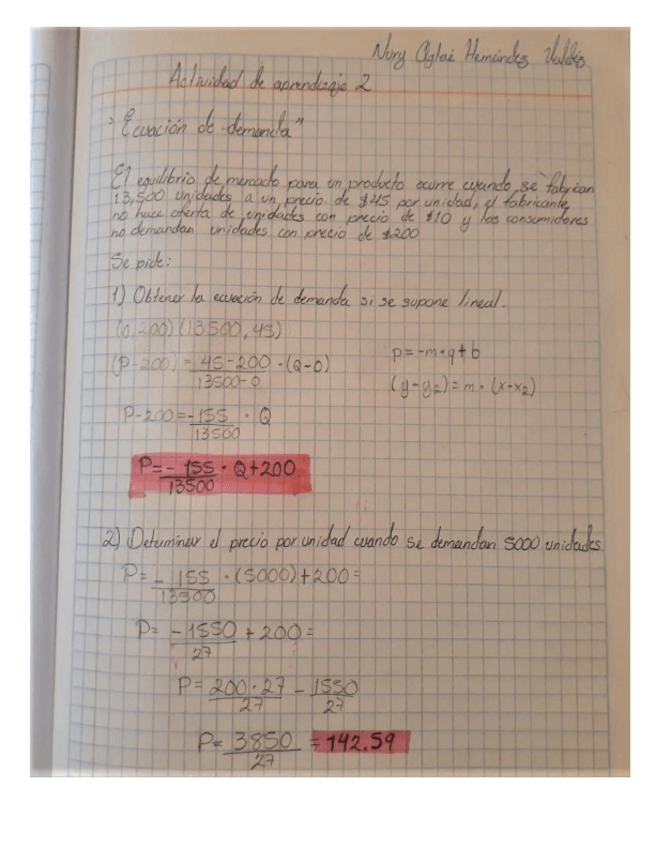 Nury Aglaé Hernández Valdéz
Actividad de aprendizaje 2
"Ecuación de demanda"
El equilibrio de mercado para un producto ocurre cuando se fabrican
13,500 unidades a un precio de $45 por unidad, el fabricante
no hace oferta de unidades con precio de $10 y los consumidores
no demandan unidades con precio de $200
Se pide:
1) Obtener la ecuación de demanda si se supone lineal.
(0,200)(13500,45)
(P-200) = 45-200 · (Q-0)
13500-0
p=-m·q+b
(y-y2)=m·(x-x2)
P-200=-155 · Q
13500
P=- 155 · Q+200
13500
2) Determinar el precio por unidad cuando se demandan 5000 unidades
P= - 155 · (5000)+200=
13500
P= -1550 + 200=
27
P= 200·27 - 1550
27 27
P= 3850 = 142.59
27